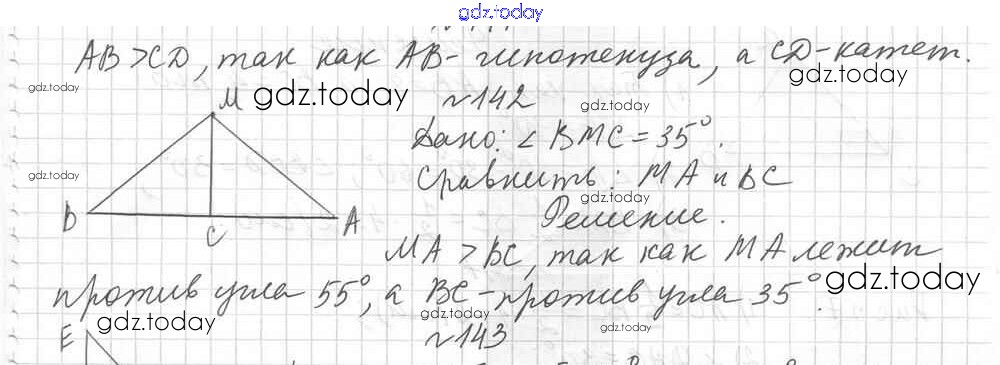 gdz.today
АВ > СD, так как АВ - гипотенуза, а СD - катет.
gdz.today
gdz.today
№142
М gdz.today
gdz.today
Дано: ∠ВМС = 35°.
gdz.today
Сравнить: МА и ВС
gdz.today
Решение.
В С А
МА > ВС, так как МА лежит
против угла 55°, а ВС - против угла 35°.
gdz.today
gdz.today
gdz.today
gdz.today
№143
Е